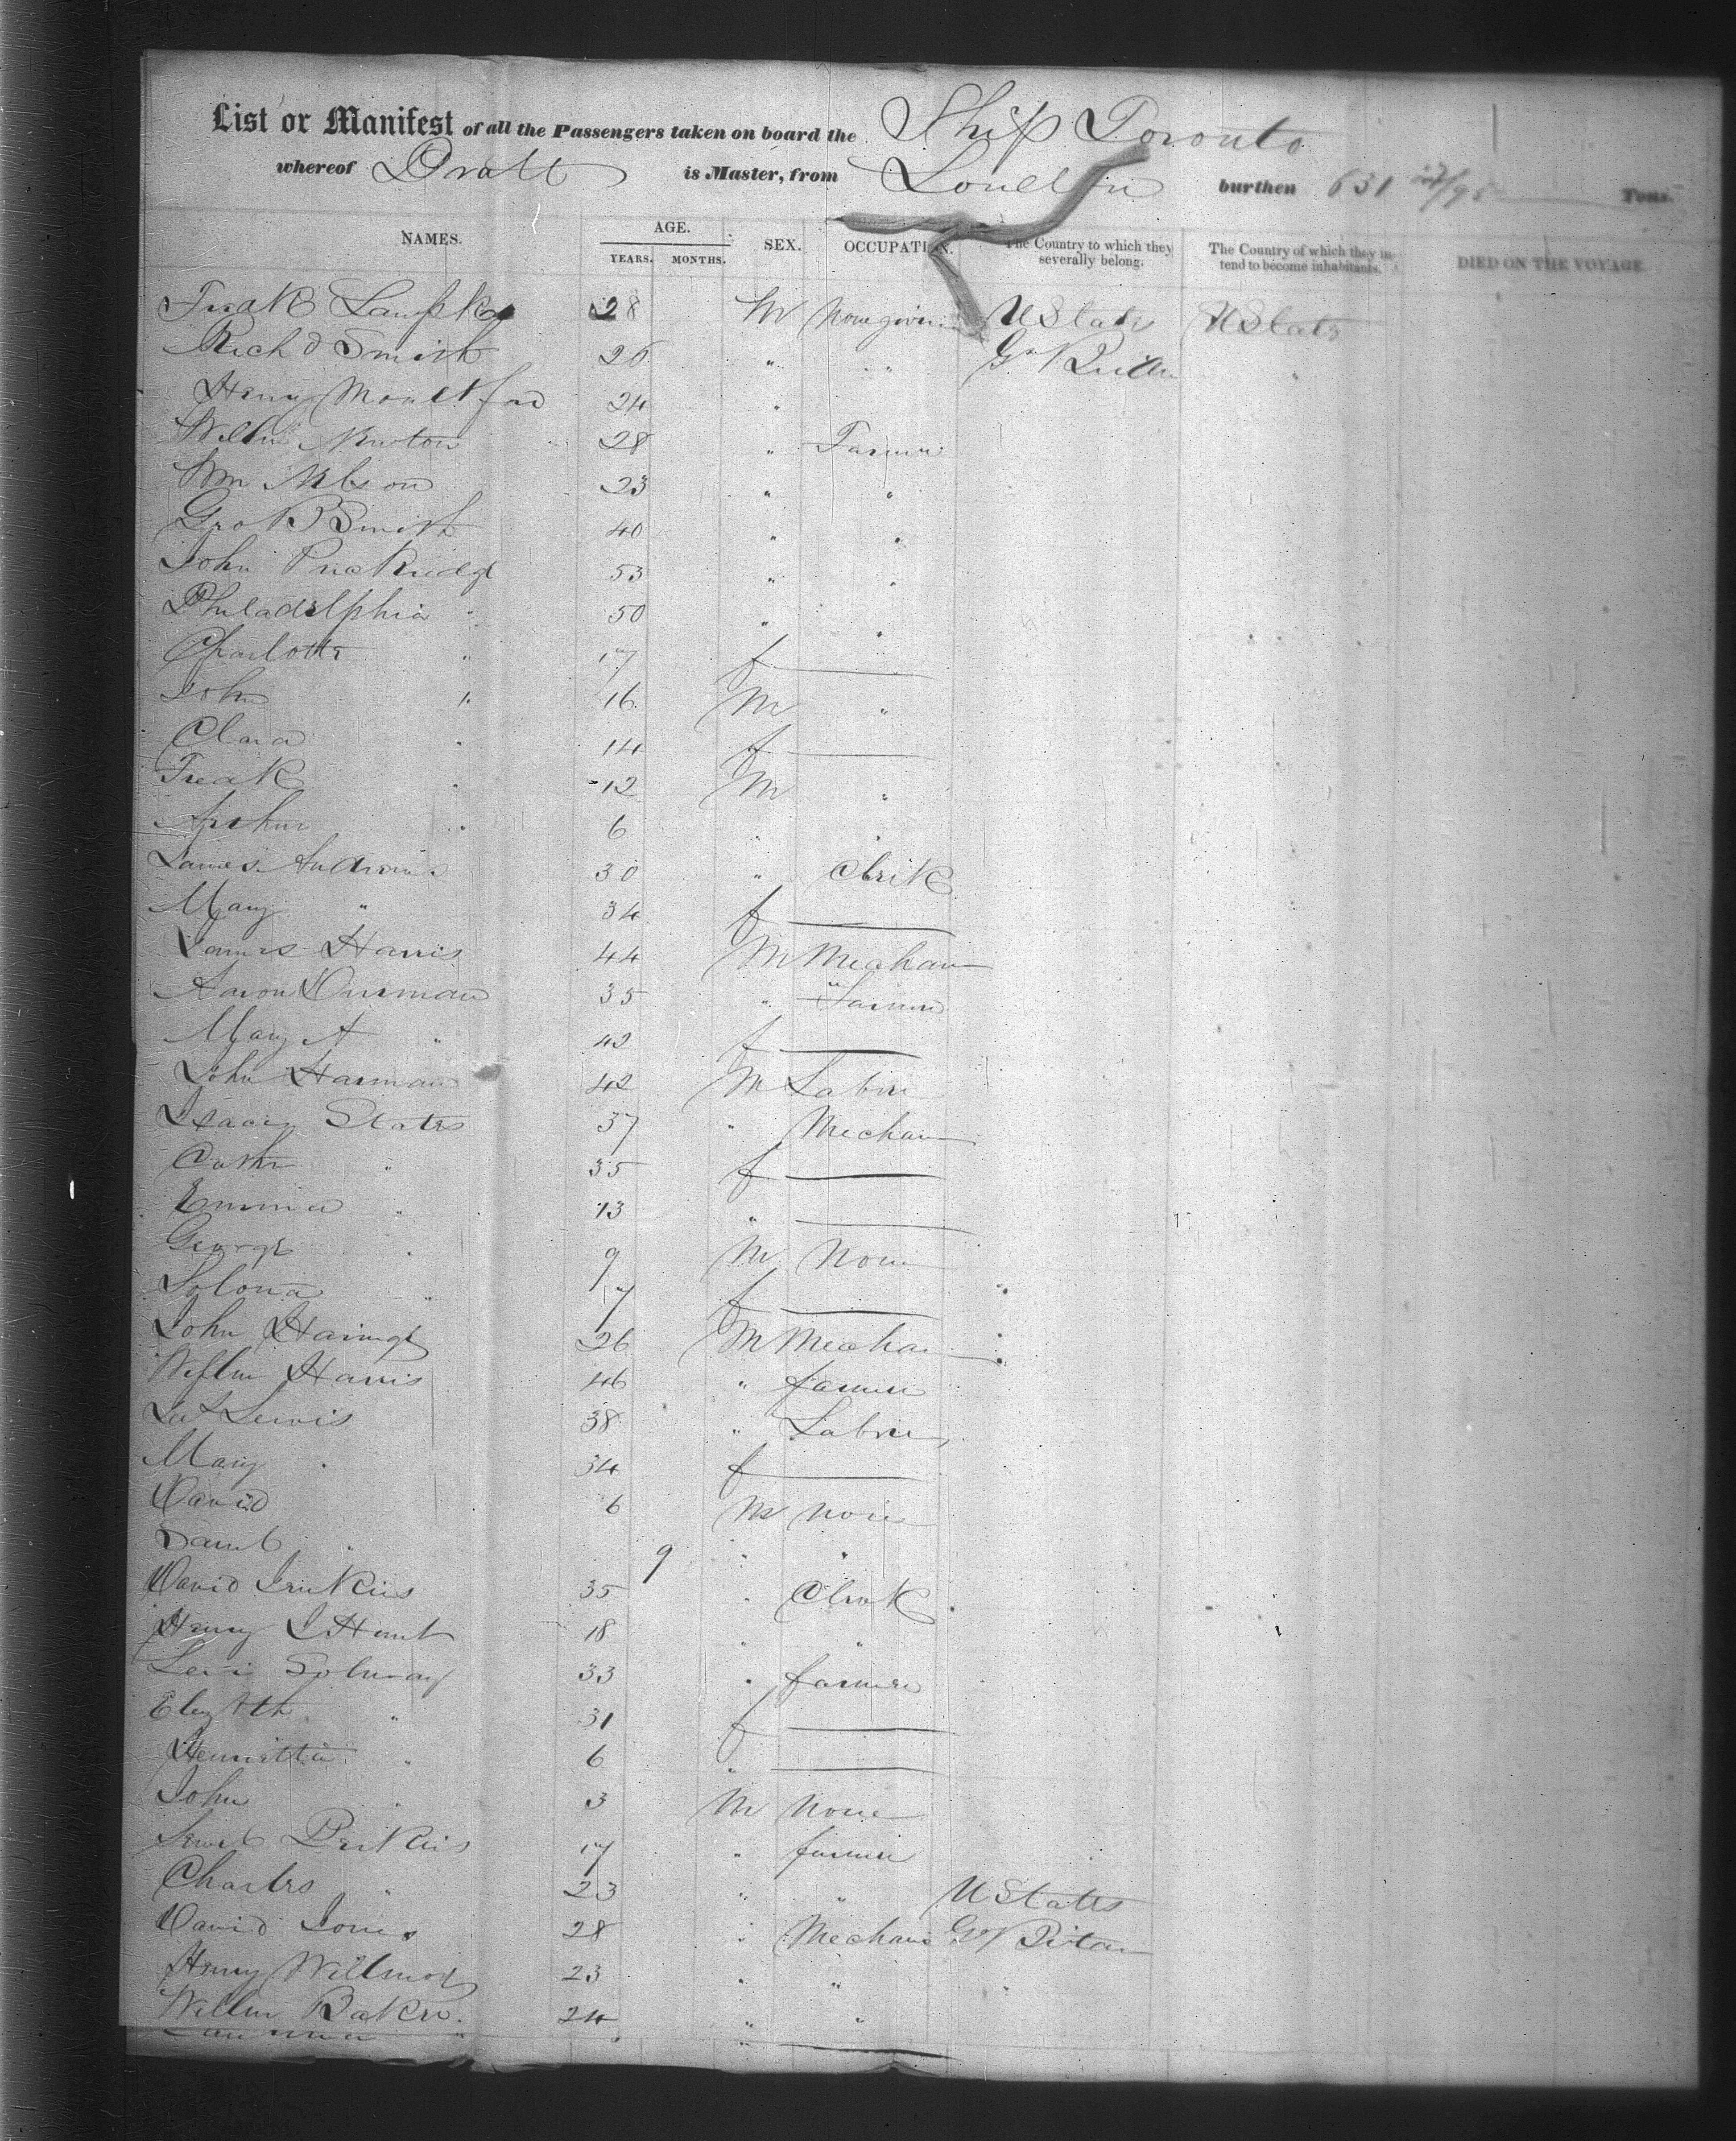 List or Manifest of all the Passengers taken on board the Ship Toronto
whereof Pratt is Master, from London burthen 631 /95 Tons.
NAMES. AGE. YEARS. MONTHS. SEX. OCCUPATION. The Country to which they severally belong. The Country of which they intend to become inhabitants. DIED ON THE VOYAGE
28 M None given U States U States
Richd Smith 26 " " Gr "
Henry 24 "
Willm Newton 28 " Farmer
Wm Nelson 23 " "
Geo B Smith 40 " "
John 53 " "
Philadelphia " 50 " "
Charlotte " 17 f
John " 16 M "
Clara " 14 f
Fredk " 12 M "
Arthur " 6 " "
James Andrews 30 " Clerk
Mary " 34 f
James Harris 44 M Mechan
Aaron 35 " Farmer
Mary A " 42 f
John Harman 42 M Labor
States 37 " Mechan
Cathr " 35 f
Emma " 13 "
George " 9 M None
" 7 f
John 26 M Mechan
Willm Harris 46 " farmer
Lewis 38 " Laborer
Mary " 34 f
David 6 M None
Saml " 9 " "
David Jenkins 35 " Clerk
Henry J Hunt 18 " "
Levi 33 " farmer
Elizbth " 31 f
Henrietta " 6 "
John " 3 M None
Perkins 17 " farmer
Charles " 23 " " U States
David Jones 28 " Mechanic Gr Britan
Henry 23 " " "
Willm Baker 24 " "